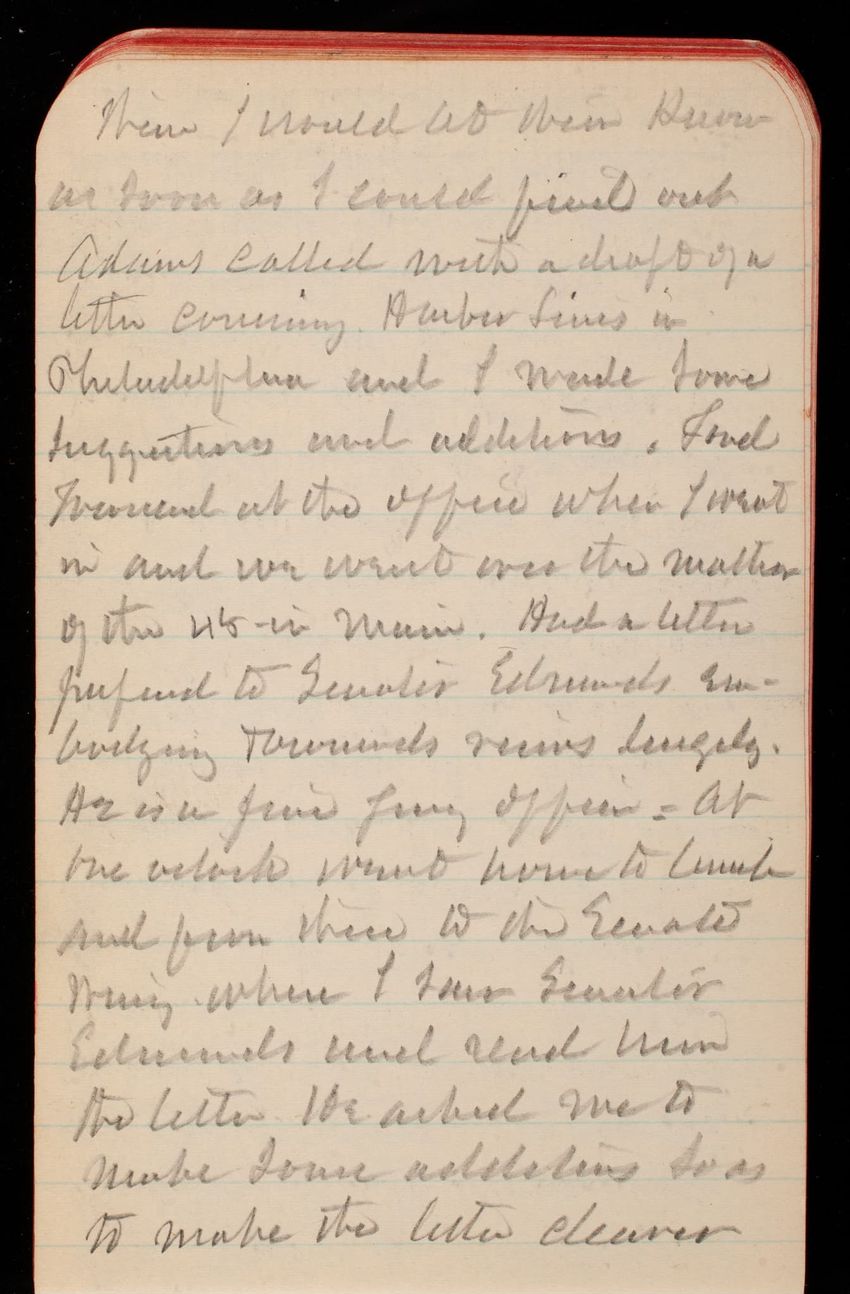 them I would let them know
as soon as I could find out
Adams called with a draft of a
letter concerning Harbor Lines in
Philadelphia and I made some
suggestions and additions. Found
Townsend at the office when I went
in and we went over the matter
of the 45 in main. Had a letter
prepared to Senator Edmunds em-
bodying Townsends views largely.
He is a fine young officer = At
one oclock went home to lunch
and from there to the Senate
Wing where I saw Senator
Edmunds and read him
the letter He asked me to
make some additions so as
to make the letter clearer